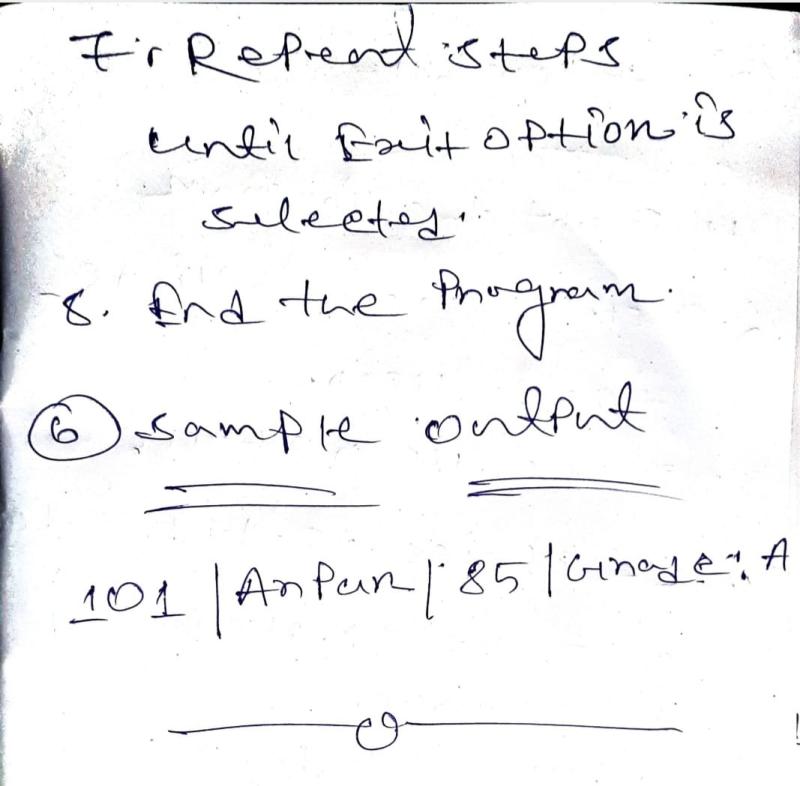 7. Repeat steps
until Exit option is
selected.
8. End the Program.
6 Sample output
101 | Arpan | 85 | Grade: A